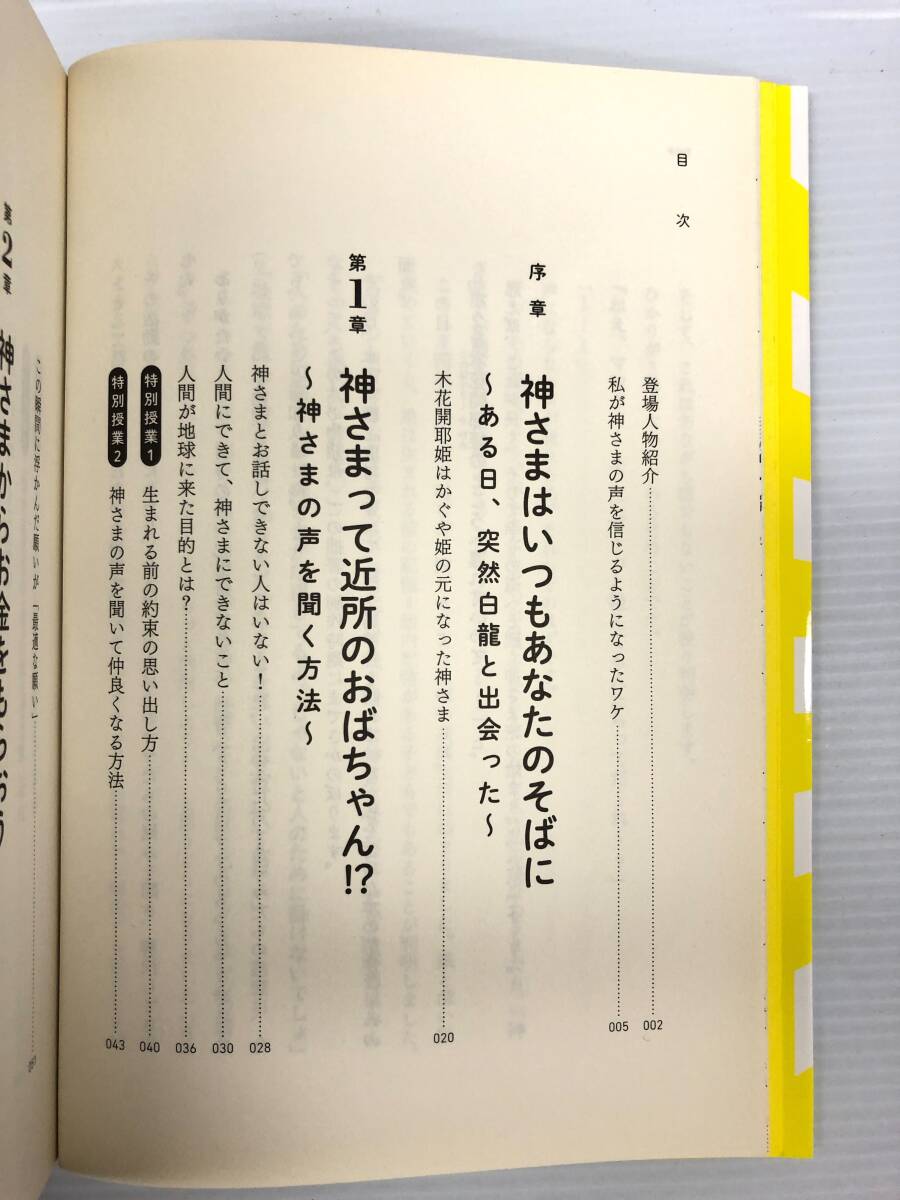 目次
登場人物紹介 002
私が神さまの声を信じるようになったワケ 005
序章
神さまはいつもあなたのそばに
〜ある日、突然白龍と出会った〜
木花開耶姫はかぐや姫の元になった神さま 020
第1章
神さまって近所のおばちゃん!?
〜神さまの声を聞く方法〜
神さまとお話しできない人はいない! 028
人間にできて、神さまにできないこと 030
人間が地球に来た目的とは? 036
特別授業1 生まれる前の約束の思い出し方 040
特別授業2 神さまの声を聞いて仲良くなる方法 043
第2章
神さまからお金をもらおう
この瞬間に浮かんだ願いが「最適な願い」